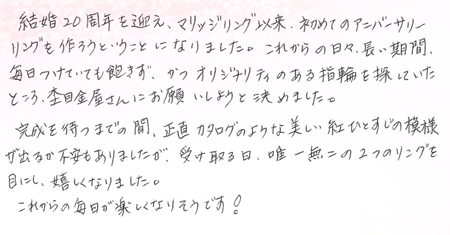 結婚20周年を迎え、マリッジリング以来、初めてのアニバーサリー
リングを作ろうということになりました。これからの日々、長い期間、
毎日つけていても飽きず、かつオリジナリティのある指輪を探していた
ところ、杢目金屋さんにお願いしようと決めました。
完成を待つまでの間、正直カタログのような美しい紅ひとすじの模様
が出るか不安もありましたが、受け取る日、唯一無二の2つのリングを
目にし、嬉しくなりました。
これからの毎日が楽しくなりそうです!